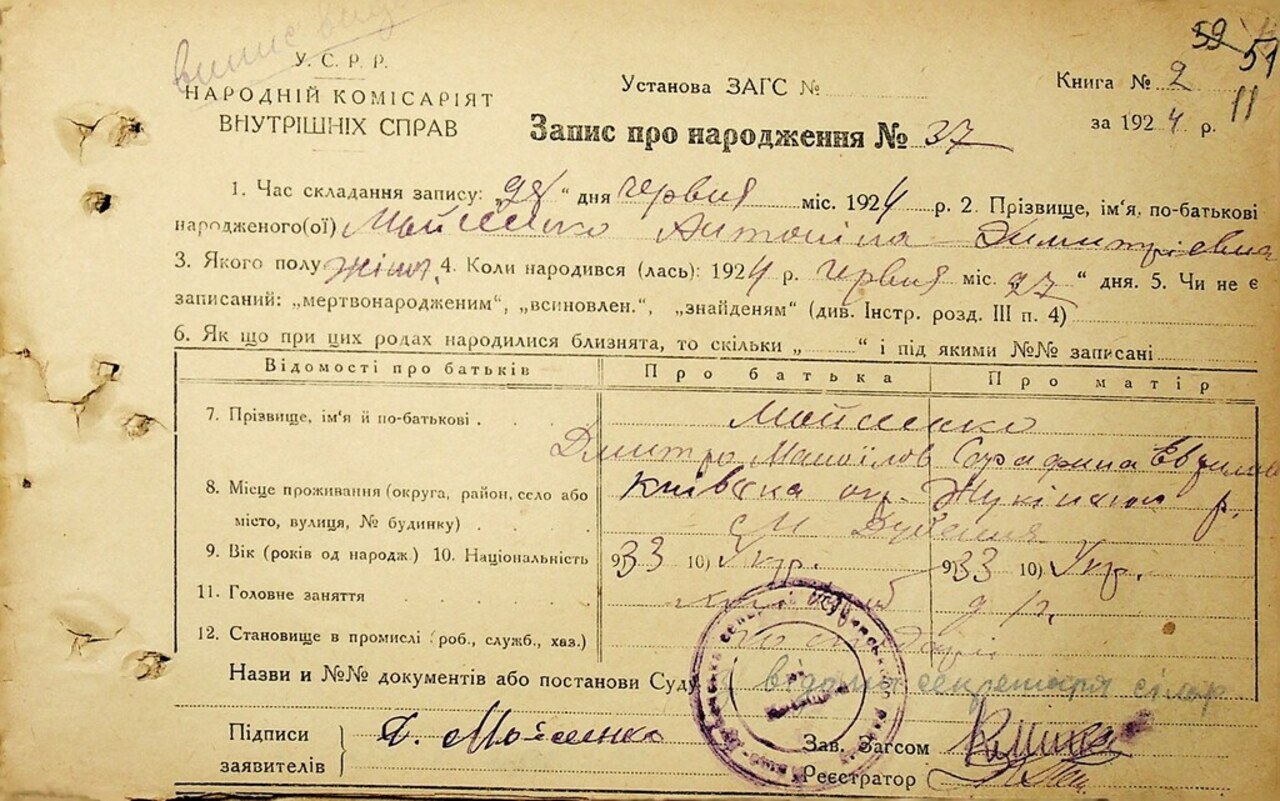 59 51
У. С. Р. Р.
НАРОДНІЙ КОМІСАРІЯТ
ВНУТРІШНІХ СПРАВ
Установа ЗАГС №
Книга № 2
за 1924 р.
11
Запис про народження № 37
1. Час складання запису: „28“ дня червня міс. 1924 р. 2. Прізвище, ім'я, по-батькові
народженого(ої) Мойсенко Антоніна Димитрієвна
3. Якого полу жіноч. 4. Коли народився (лась): 1924 р. червня міс. 27 “ дня. 5. Чи не є
записаний: „мертвонародженим“, „всиновлен.“, „знайденям“ (див. Інстр. розд. III п. 4)
6. Як що при цих родах народилися близнята, то скільки „ “ і під якими №№ записані
Відомості про батьків Про батька Про матір
7. Прізвище, ім'я й по-батькові . Мойсенко
Дмитро Манойлов Серафима
8. Місце проживання (округа, район, село або Київська ок. р.
місто, вулиця, № будинку) . .
9. Вік (років од народж.) 10. Національність 9) 33 10) Укр. 9) 33 10) Укр.
11. Головне заняття
12. Становище в промислі (роб., служб., хаз.)
Назви и №№ документів або постанови Суду відома секретаря сільр
Підписи
заявителів
Д. Мойсенко
Зав. Загсом
Реєстратор